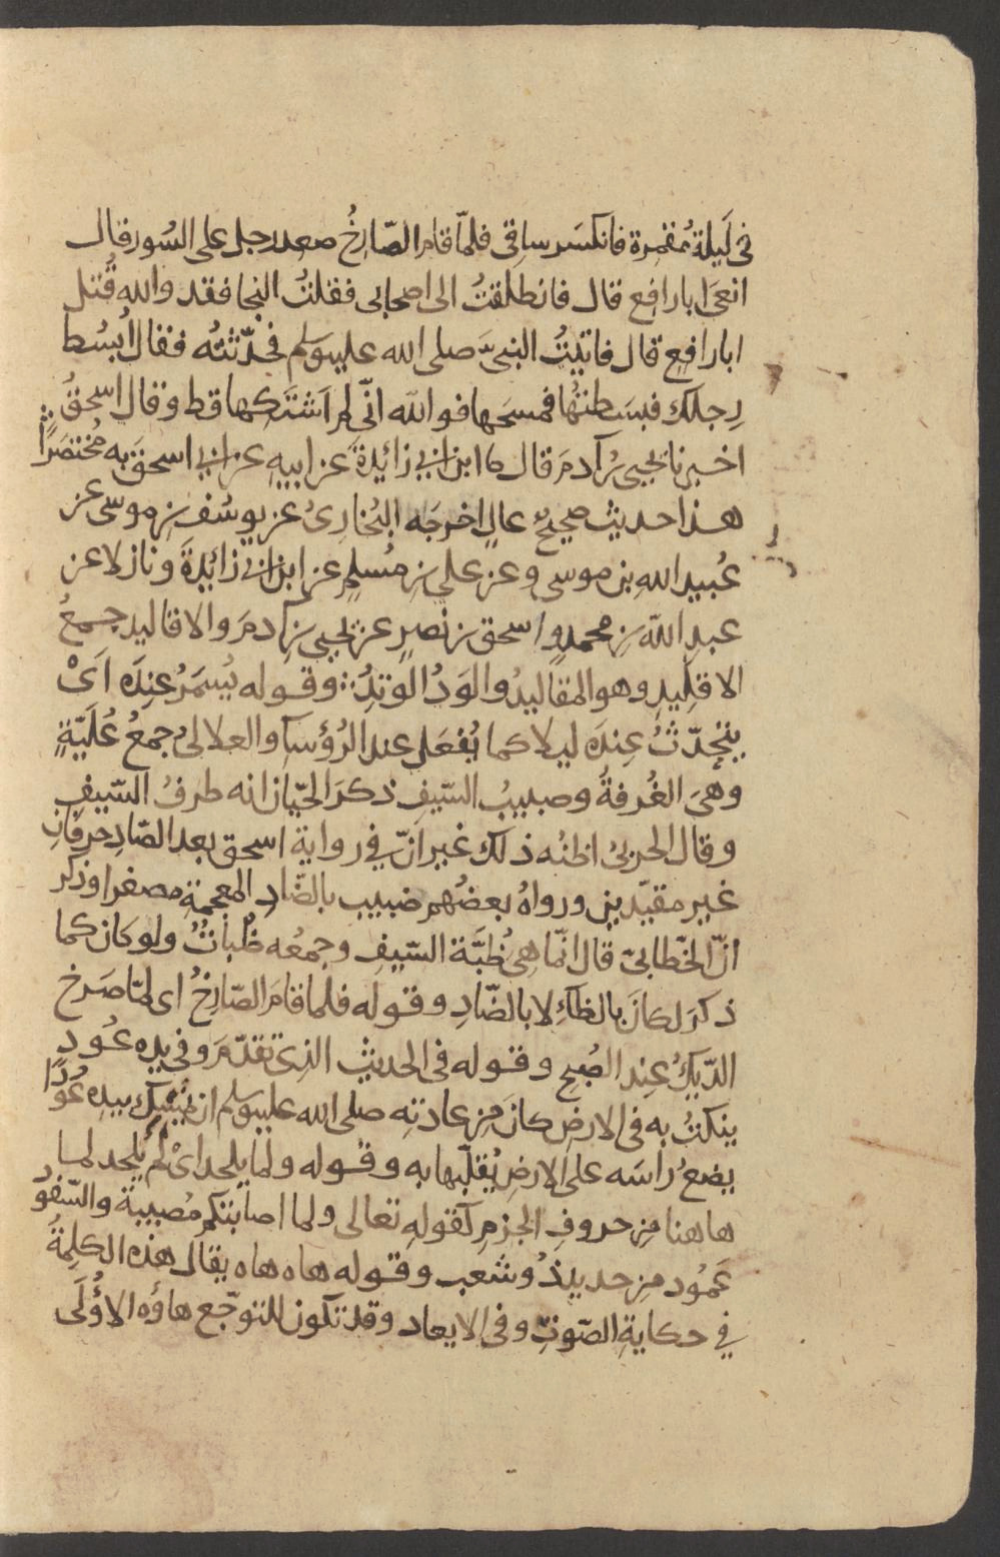 في لَيلةٍ مُقمِرة فانكسَر ساقي فلمّا قام الصّارِخُ صعد رجل على السُور فقال
انعىَ ابا رافع قال فانطلقتُ الى اصحابى فقلتُ النجا فقد والله قُتل
ابا رافع قال فاتيتُ النبىَّ صلى الله عليه وسلم فحدّثتُه فقال اُبسُط
رِجلك فبسَطتُها فمسَحها فوالله انّى لم اَشتَكِها قط وقال اسحقُ
اخبرنا يحيى بنُ آدمَ قال نا ابن ابي زائِدةَ عن ابيهِ عن ابي اسحقَ به مُختصَرًا
هذا حديث صحيحٌ عالٍ اخرجَه البُخارِىُ عن يوسُف بنِ موسى عن
عُبيد اللهِ بن موسى وعن علي بنِ مُسلمٍ عن ابن ابي زائِدةَ ونازلا عن
عبدِ اللّه بنِ محمدٍ واسحق بن نصرٍ عن يحيى بنِ آدمَ والاقاليد جمعُ
الاقلِيدِ وهو المقاليدُ والوَدُ الوتِدُ وقوله يُسمَرُ عِندَه اَىْ
يتحدّثُ عِندَه ليلا كما يُفعَل عند الرُؤسآ والعلالىُ جمعُ عُلّيّةٍ
وهىَ الغُرفةُ وصبيبُ السّيفِ ذكرَ الحيّان انه طرفُ السّيفِ
وقال الحربىُ اظنُه ذلك غير انّ في رواية اسحق بعد الصّادِ حرفانِ
غير مقيّدين ورواهُ بعضُهم ضبيب بالضّادِ المعجمةِ مصغرا وذكر
انّ الخّطابىّ قال انّما هِى ظُبَّة السّيفِ وجمعُه ظُباتٌ ولو كان كما
ذكرَ لكانَ بالظآءِ لا بالضّادِ وقوله فلما قامَ الصّارِخُ اى لمّا صَرخ
الدّيكُ عِند الصُبحِ وقوله فى الحديث الذى تقدّمَ وفي يده عُود
ينكتُ به فى الارضِ كانَ مِن عادتِه صلى الله عليه وسلم ان يُمسِك بيدِه عُودًا
يضعُ راسَه على الارضِ يُقلّبها به وقوله ولما يلحد اىْ لم يُلحد لما
هاهنا مِن حروفِ الجزمِ كقولهِ تعالى ولما اصابتكم مُصيبة والسّفود
عَمُود من حديد ذُو شعب وقوله هاه هاه يقال هذه الكلِمةُ
في حكايةِ الصّوتِ وفى الايعاد وقد تكون للتوجّع هاؤه الاُولَى